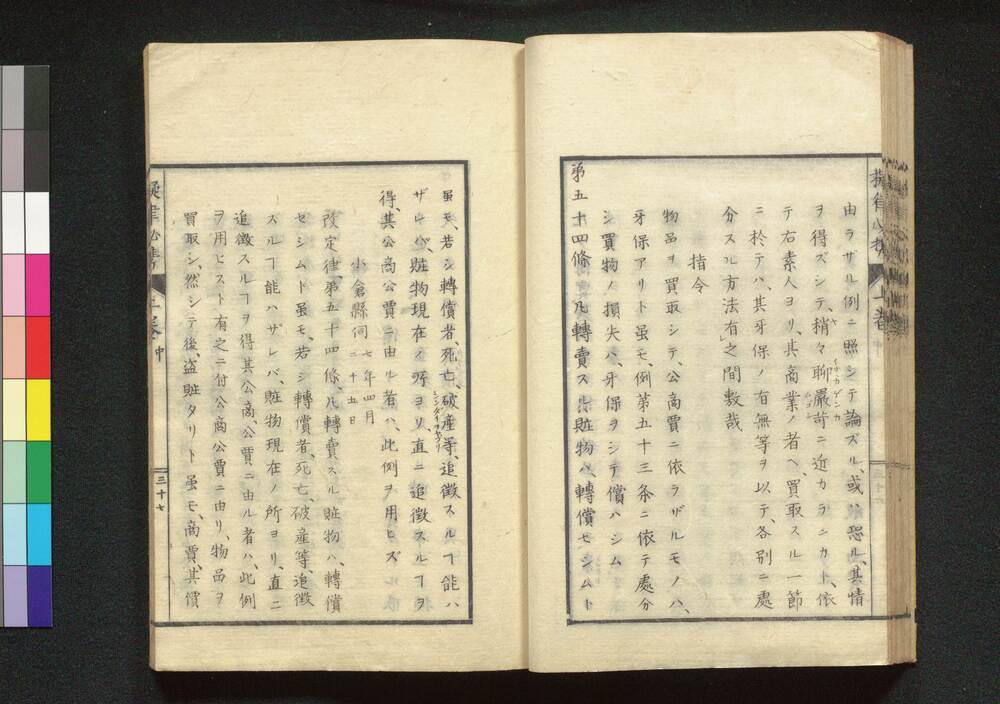 由ラザル例ニ照シテ論ズル、或ハ恐ル、其情
ヲ得ズシテ、稍々聊嚴苛ニ近カラニカト、依
テ右素人ヨリ、其商業ノ者ヘ、買取スル一節
ニ於テハ、其牙保ノ有無等ヲ以テ、各別ニ處
分スル方法有之間敷哉
指令
物品ヲ買取シテ、公商賈ニ依ラザルモノハ、
牙保アリト虽モ、例第五十三条ニ依テ處分
シ買物ノ損失ハ、牙保ヲシテ償ハシム
第五十四條 凡轉賣スル賍物ハ、轉償セシムト
虽モ、若シ轉償者、死亡、破産等、追徴スルヿ能ハ
ザレバ、賍物現在ノ所ヨリ、直ニ追徴スルヿヲ
得、其公商公賈ニ由ル者ハ、此例ヲ用ヒズ
小倉縣伺 七年四月二十五日
改定律、第五十四條、凡轉賣スル賍物ハ、轉償
セシムト虽モ、若シ轉償者、死亡、破産等、追徴
スルヿ能ハザレバ、賍物現在ノ所ヨリ、直ニ
追徴スルヿヲ得其公商、公賈ニ由ル者ハ、此例
ヲ用ヒスト有之ニ付公商公賈ニ由リ、物品ヲ
買取シ、然シテ後、盗賍タリト虽モ、商賈、其價
中
三十七